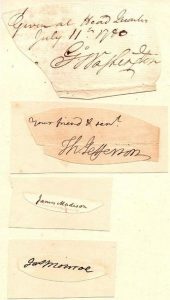 Given at Head Quarters
July 11th 1780
Go Washington
Your friend & servt
Th Jefferson
James Madison
Jas Monroe